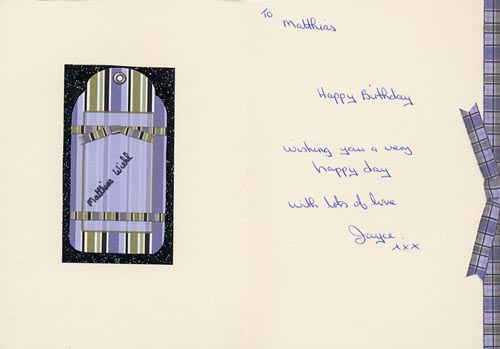 Matthias Wiehl
To
Matthias
Happy Birthday
wishing you a very
happy day
with lots of love
Joyce.
xxx